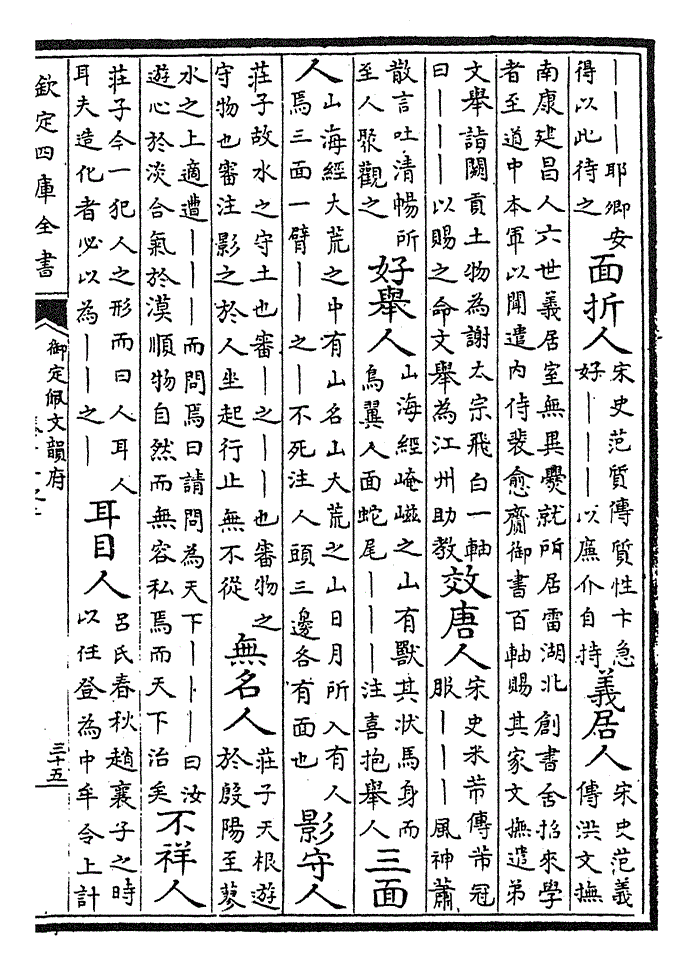 ｜｜｜耶卿安
得以此待之
面折人
宋史范質傳質性卞急
好｜｜｜以廉介自持
義居人
宋史范義
傳洪文撫
南康建昌人六世義居室無異爨就所居雷湖北創書舍招來學
者至道中本軍以聞遣内侍裴愈齎御書百軸賜其家文撫遣弟
文舉詣闕貢土物為謝太宗飛白一軸
曰｜｜｜以賜之命文舉為江州助教
效唐人
宋史米芾傳芾冠
服｜｜｜風神蕭
散言吐清暢所
至人聚觀之
好舉人
山海經崦嵫之山有獸其狀馬身而
鳥翼人面蛇尾｜｜｜注喜抱舉人
三面
人
山海經大荒之中有山名山大荒之山日月所入有人
焉三面一臂｜｜之｜不死注人頭三邊各有面也
影守人
莊子故水之守土也審｜之｜｜也審物之
守物也審注影之於人坐起行止無不從
無名人
莊子天根遊
於殷陽至蓼
水之上適遭｜｜｜而問焉曰請問為天下｜｜｜曰汝
遊心於淡合氣於漠順物自然而無容私焉而天下治矣
不祥人
莊子今一犯人之形而曰人耳人
耳夫造化者必以為｜｜之｜
耳目人
呂氏春秋趙襄子之時
以任登為中牟令上計
欽定四庫全書
御定佩文韻府
三十五